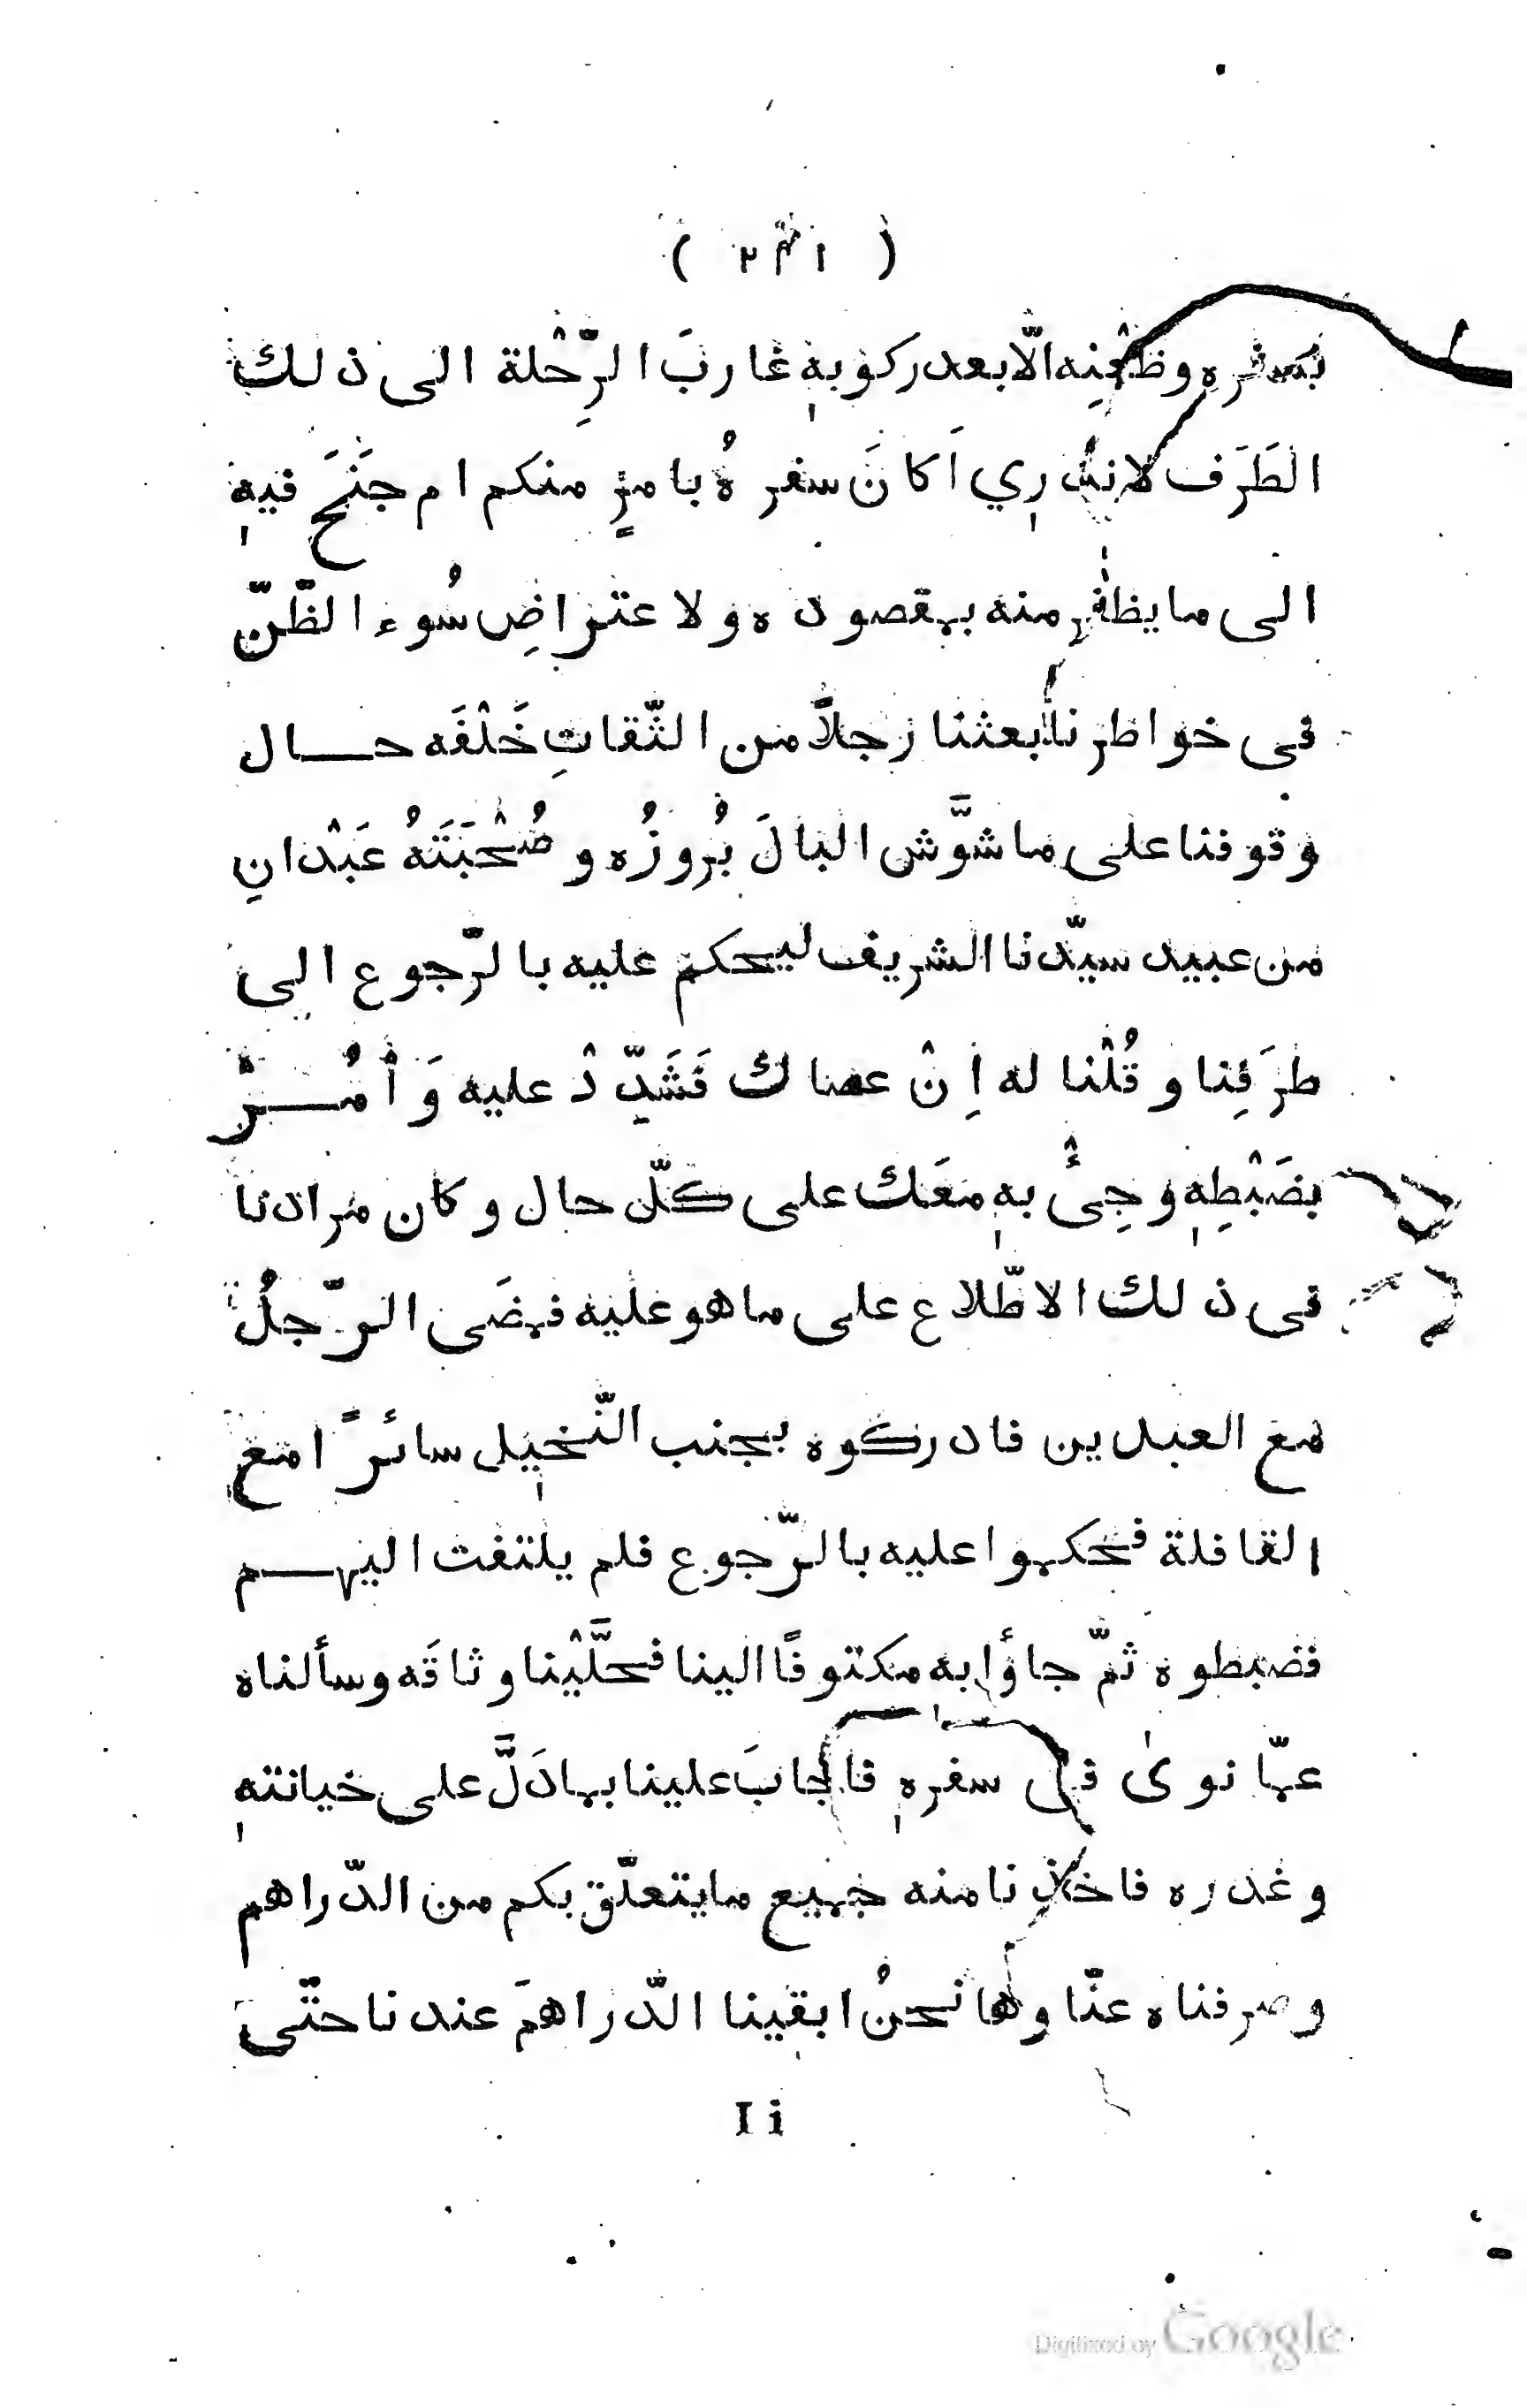 ( ٢٤١ )
بسفره وظَعْنِه الّا بعد ركوبهٖ غاربَ الرِّحْلة الى ذلك
الطَرَف لا ندري اَكانَ سفرهُ بامرٍ منكم ام جَنَحَ فيهٖ
الى ما يظفر منه بمقصوده ولاعتراضِ سُوء الظّنّ
فى خواطرنا بعثنا رجلاً من الثّقاتِ خَلْفَه حال
وقوفنا على ما شوَّش البالَ بُروزُه وصُحْبَتَهُ عَبْدانِ
من عبيد سيّدنا الشريف ليحكم عليه بالرّجوع الى
طرَفِنا وقُلْنا له اِنْ عصاك فَشَدِّدْ عليه وَأْمُرْ
بضَبْطِهٖ وجِئْ بهٖ معَك على كلّ حال وكان مرادنا
فى ذلك الاطّلاع على ما هو عليه فمضَى الرّجلُ
مع العبدين فادركوه بجنب النّخيل سائرًا مع
القافلة فحكموا عليه بالرّجوع فلم يلتفت اليهم
فضبطوه ثمّ جاؤا به مكتوفًا الينا فحلَّيْنا وثاقَه وسألناه
عمّا نوىٰ فى سفرهٖ فاجابَ علينا بما دَلَّ على خيانتهٖ
وغدره فاخذنا منه جميع ما يتعلّق بكم من الدّراهم
وصرفناه عنّا وها نحنُ ابقينا الدّراهمَ عندنا حتّى
I i
Digitized by Google